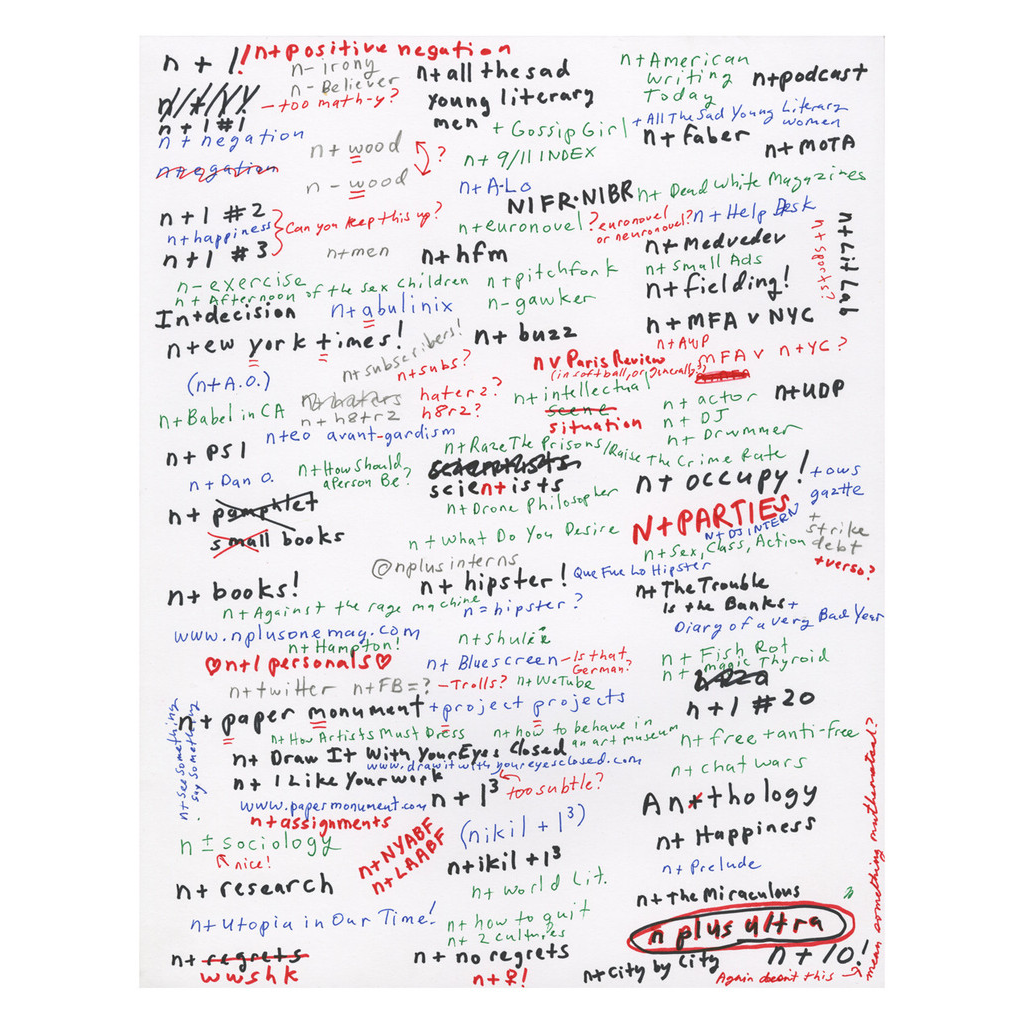 n + 1!
! n + positive negation
n/+/1/!
- too math-y?
n - irony
n - Believer
n + all the sad
young literary
men
n + American
Writing
Today
n + podcast
n + 1 #1
n + negation
nnegation
n + wood
n - wood
?
+ Gossip Girl
+ All The Sad Young Literary
women
n + Faber
n + MOTA
n + 9/11 INDEX
n + A-Lo
NIFR·NIBR
n + Dead White Magazines
n + 1 #2
n + happiness
n + 1 #3
Can you keep this up?
n + men
n + hfm
n + euronovel?
euronovel
or neuronovel?
n + Help Desk
n + Medvedev
n + Small Ads
n + fielding!
n + Lit Lab
n + sports?
n - exercise
n + Afternoon of the sex children
n + pitchfork
n - gawker
In+decision
n + abulinix
n + buzz
n + MFA v NYC
n + AWP
MFA v n + YC?
n + ew york times!
n + subscribers!
n + subs?
n v Paris Review
(in softball, or generally?)
(n + A.O.)
n + Babel in CA
n + h8trz
haterz?
h8rz?
n + intellectual
scene
situation
n + actor
n + DJ
n + Drummer
n + UDP
n + eo avant-gardism
n + PS1
n + Raze The Prisons/Raise The Crime Rate
n + Dan O.
n + How Should
a Person Be?
scientists
n + occupy!
+ ows
gazette
n + Drone Philosopher
n + pamphlet
small books
N + PARTIES
n + DJ INTERN
+
strike
debt
+ verso?
n + What Do You Desire
n + Sex, Class, Action
@nplusinterns
n + books!
n + hipster!
Que Fue Lo Hipster
n + The Trouble
Is the Banks +
Diary of a Very Bad Year
n + Against the rage machine
n = hipster?
www.nplusonemag.com
n + Hampton!
n + Shulie
♡ n + 1 personals ♡
n + Bluescreen
- Is that
German?
n + Fish Rot
n + magic Thyroid
n + twitter
n + FB = ?
- Trolls?
n + WeTube
n + paper monument
+ project projects
n + 1 #20
n + See Something
Say Something
n + How Artists Must Dress
n + how to behave in
an art museum
n + free + anti-Free
n + Draw It With Your Eyes Closed
www.drawitwithyoureyesclosed.com
n + chat wars
n + I Like Your Work
www.papermonument.com
n + 1³
too subtle?
An+thology
n + assignments
n ± sociology
nice!
n + NYABF
n + LAABF
(nikil + 1³)
n + Happiness
n + ikil + 1³
n + Prelude
n + research
n + World Lit.
n + The Miraculous
n + Utopia in Our Time!
n + how to quit
n + 2 cultures
n plus ultra
n + regrets
wwshk
n + no regrets
n + ♀!
n + City by City
n + 10!
Again doesn't this
mean something mathematical?